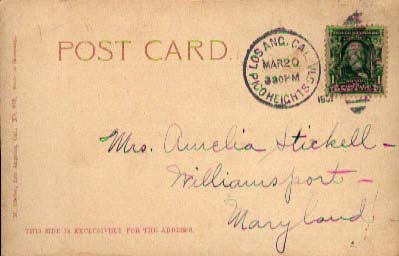 POST CARD.
LOS ANG. CAL.
MAR 20
330PM
PICO HEIGHTS
Mrs. Amelia Stickell-
Williamsport-
Maryland-
THIS SIDE IS EXCLUSIVELY FOR THE ADDRESS.